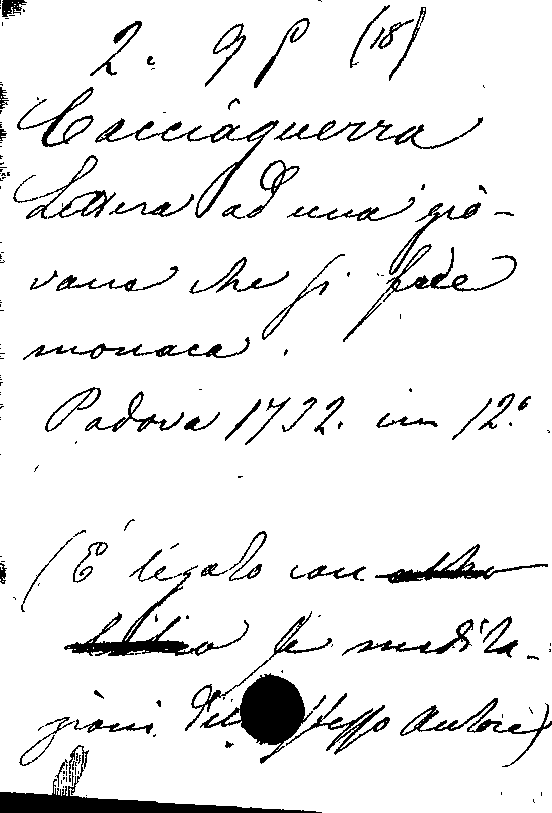 2. 9 P (18)
Cacciaguerra
Lettera ad una gio-
vane che si fece
monaca.
Padova 1732. in 12.º
(È legato con
le medita-
zioni dell stesso Autore)